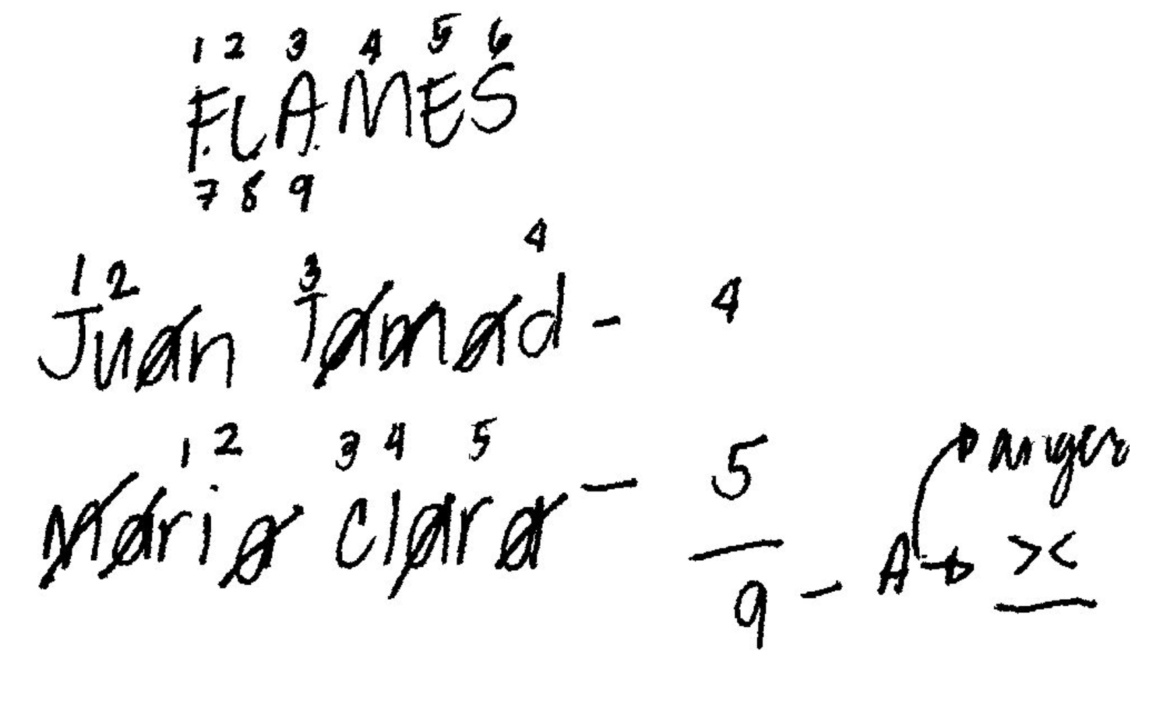 1 2 3 4 5 6
FLAMES
7 8 9
1 2 3 4
Juan Tamad - 4
1 2 3 4 5
maria Clara - 5
anger
9 - A → ><